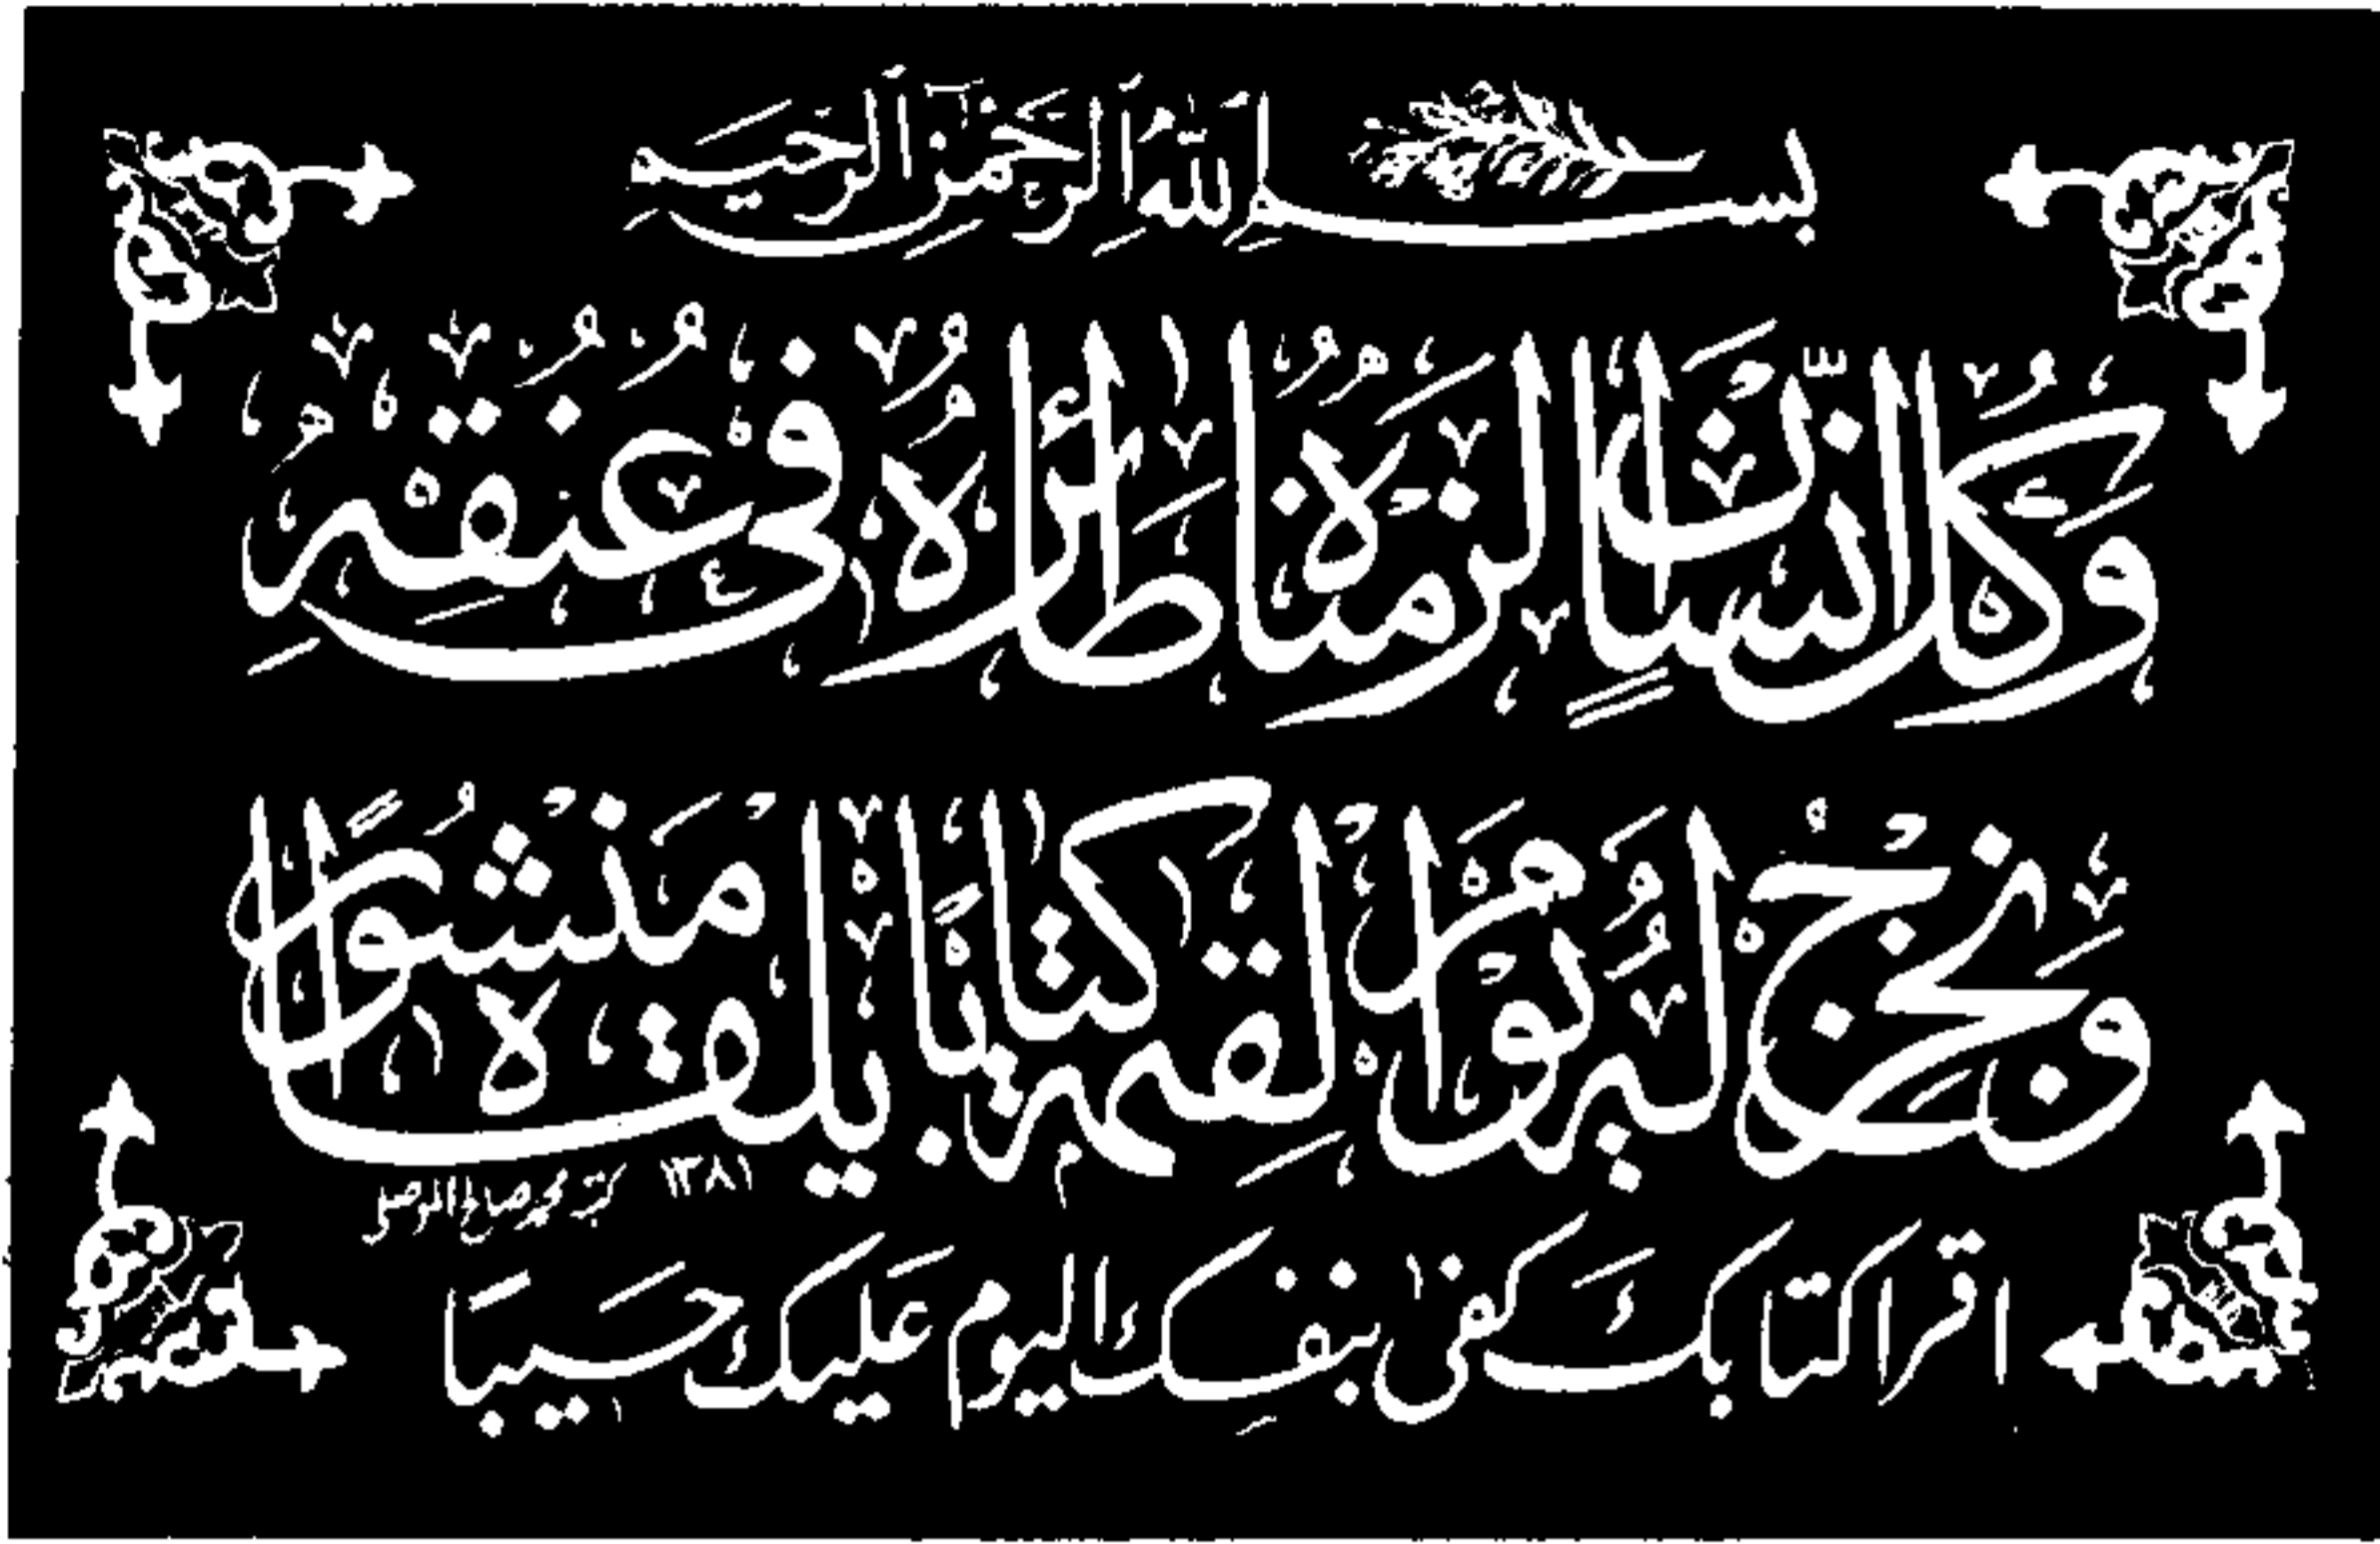 بسم الله الرحمن الرحيم
وكل انسان الزمناه طائره في عنقه
ونخرج له يوم القيمة كتابا يلقاه منشورا
١٣٨١
اقرا كتابك كفى بنفسك اليوم عليك حسيبا